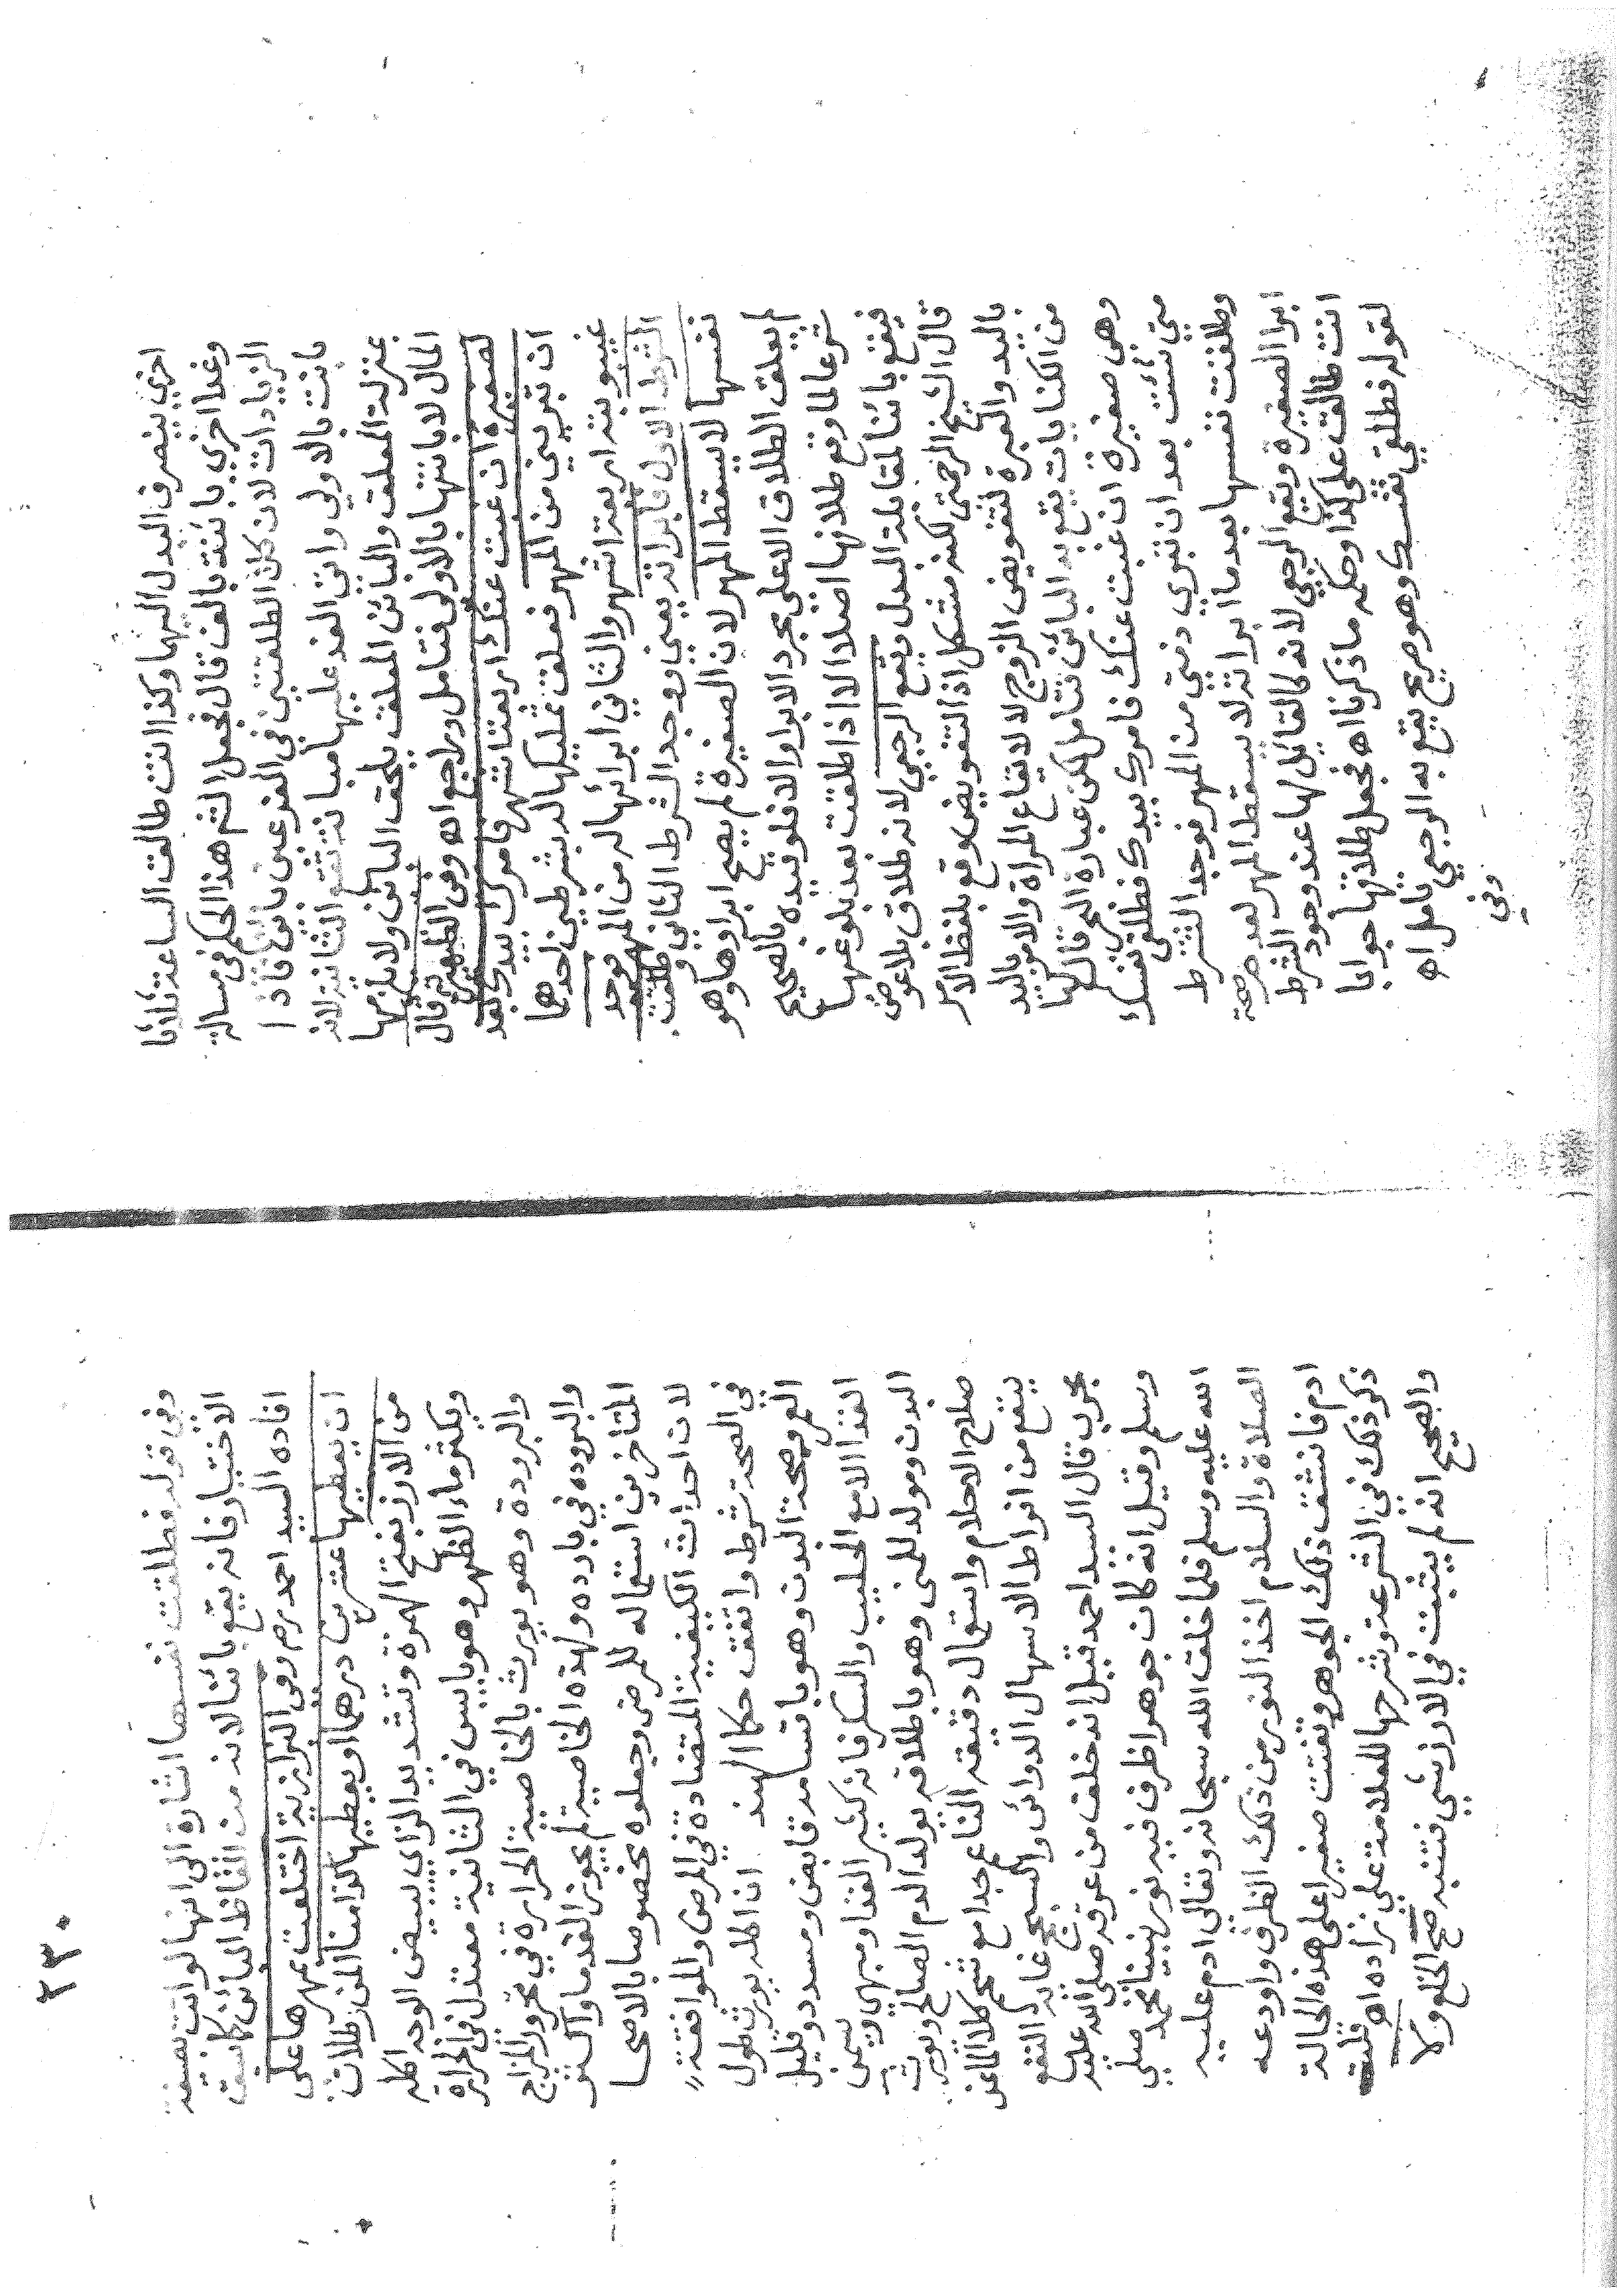 اخري ينصرف البدل اليها وكذا انت طالق الساعة ثلاثا
وغدا اخري بائنة بالف قال فجعل الثم هذا الحكم في مسالة
الزيادات لان كلا الطلقتين في الفرعين بائن فاذا
بانت بالاولي واتي الغد عليها مبانة تقع الثانية لانه
بمنزلة المعلق والبائن المعلق يلحق البائن ولا يلزمها
المال لابانتها بالاولي فتامل وراجع اه وفي الظهيرية قال
لصغيرة ان غبت عنك اربعة اشهر فامرك بيدك بعد
ان تبريني من المهر فعلق تمليكها له بشرطين احدهما
غيبوبته اربعة اشهر والثاني ابرائها له من المهر فوجد
الشرط الاول فابراته يعني ووجد الشرط الثاني وطلقت
نفسها لا يسقط المهر لان الصغيرة لم يصح ابراوها وهو
لم يعلق الطلاق الا علي مجرد الابراء والا فلو قيده بالصحيح
شرعا لما وقع طلاقها اصلا الا اذا طلقت بعد بلوغها
فيقع بائنا لمقابلة البدل ويقع الرجعي لانه طلاق بلا عوض
قال الشيخ الرحمتي لكنه مشكل اذ التفويض وقع بلفظ الامر
باليد والعبرة لتفويض الزوج لا لايقاع المراة والامر باليد
من الكنايات يقع به البائن فتامل لكن عبارة البحر قال لها
وهي صغيرة ان غبت عنك فامرك بيدك فطلقي نفسك
متي شئت بعد ان تبري ذمتي من المهر فوجد الشرط
وطلقت نفسها بعد ما ابراته لا يسقط المهر لعدم صحة
ابرا الصغيرة ويقع الرجعي لانه كالقائل لها عند وجود الشرط
انت طالق علي كذا وحكمه ما ذكرنا اه فجعل طلاقها جوابا
لقوله فطلقي نفسك وهو صريح يقع به الرجعي تامل اه
وفي
٢٣٠
وفي قوله فطلقت نفسها اشارة الي انها لو اتت بصيغة
الاختيار فانه يقع بائنا لانه من الفاظ البائن كما سبق
افاده السيد احمد رم وفي البزازية اختلعت بمهرها علي
ان يعطيها عشرين درهما او يعطيها كذا منا من الارز طلاق
من الارز بفتح الهمزة وتشديد الزاي يبيض الوجه اكله
ويكثر ماء الظهر وهو يابس في الثانية معتدل في الحرارة
والبرودة وهو يورث بالخاصية الحرارة في محرور المزاج
والبرودة في بارده ولهذه الخاصية لم يجوز القدماء واكثر
المتاخرين استعماله للمرضي وجعلوه مخصوصا بالاصحا
لان احداث الكيفية المتضادة في المرض والموافقة
في الصحة شرط واتفق حكما الهند ان اكله يورث طول
العمر وصحة البدن وهو باقسامه قابض ومسدد وقليل
الغذا الا مع الحليب والسكر فانه كثير الغذا ومبهي ويسمن
البدن ومولد للمني وهو باطلاقه يولد الدم الصالح ويورث
صلاح الاحلام واستعمال دقيقه الناعم جدا مع شحم كلا الماعز
ينفع من افراط الاسهال الدوائي والسحج غاية النفع
مجرب قال السيد احمد قيل انه خلق من عرقه صلي الله عليه
وسلم وقيل انه كان جوهرا ظرف فيه نور نبينا محمد صلي
الله عليه وسلم فلما خلق الله سبحانه وتعالي ادم عليه
الصلاة والسلام اخذ النور من ذلك الظرف واودعه
ادم فانشق ذلك الجوهر وتفتت صغيرا علي هذه الحالة
ذكر ذلك في الشرعة وشرحها للعلامة علي زاده اه قلت
والصحيح انه لم يثبت في الارز شي فتنبه صح الخلع ولا